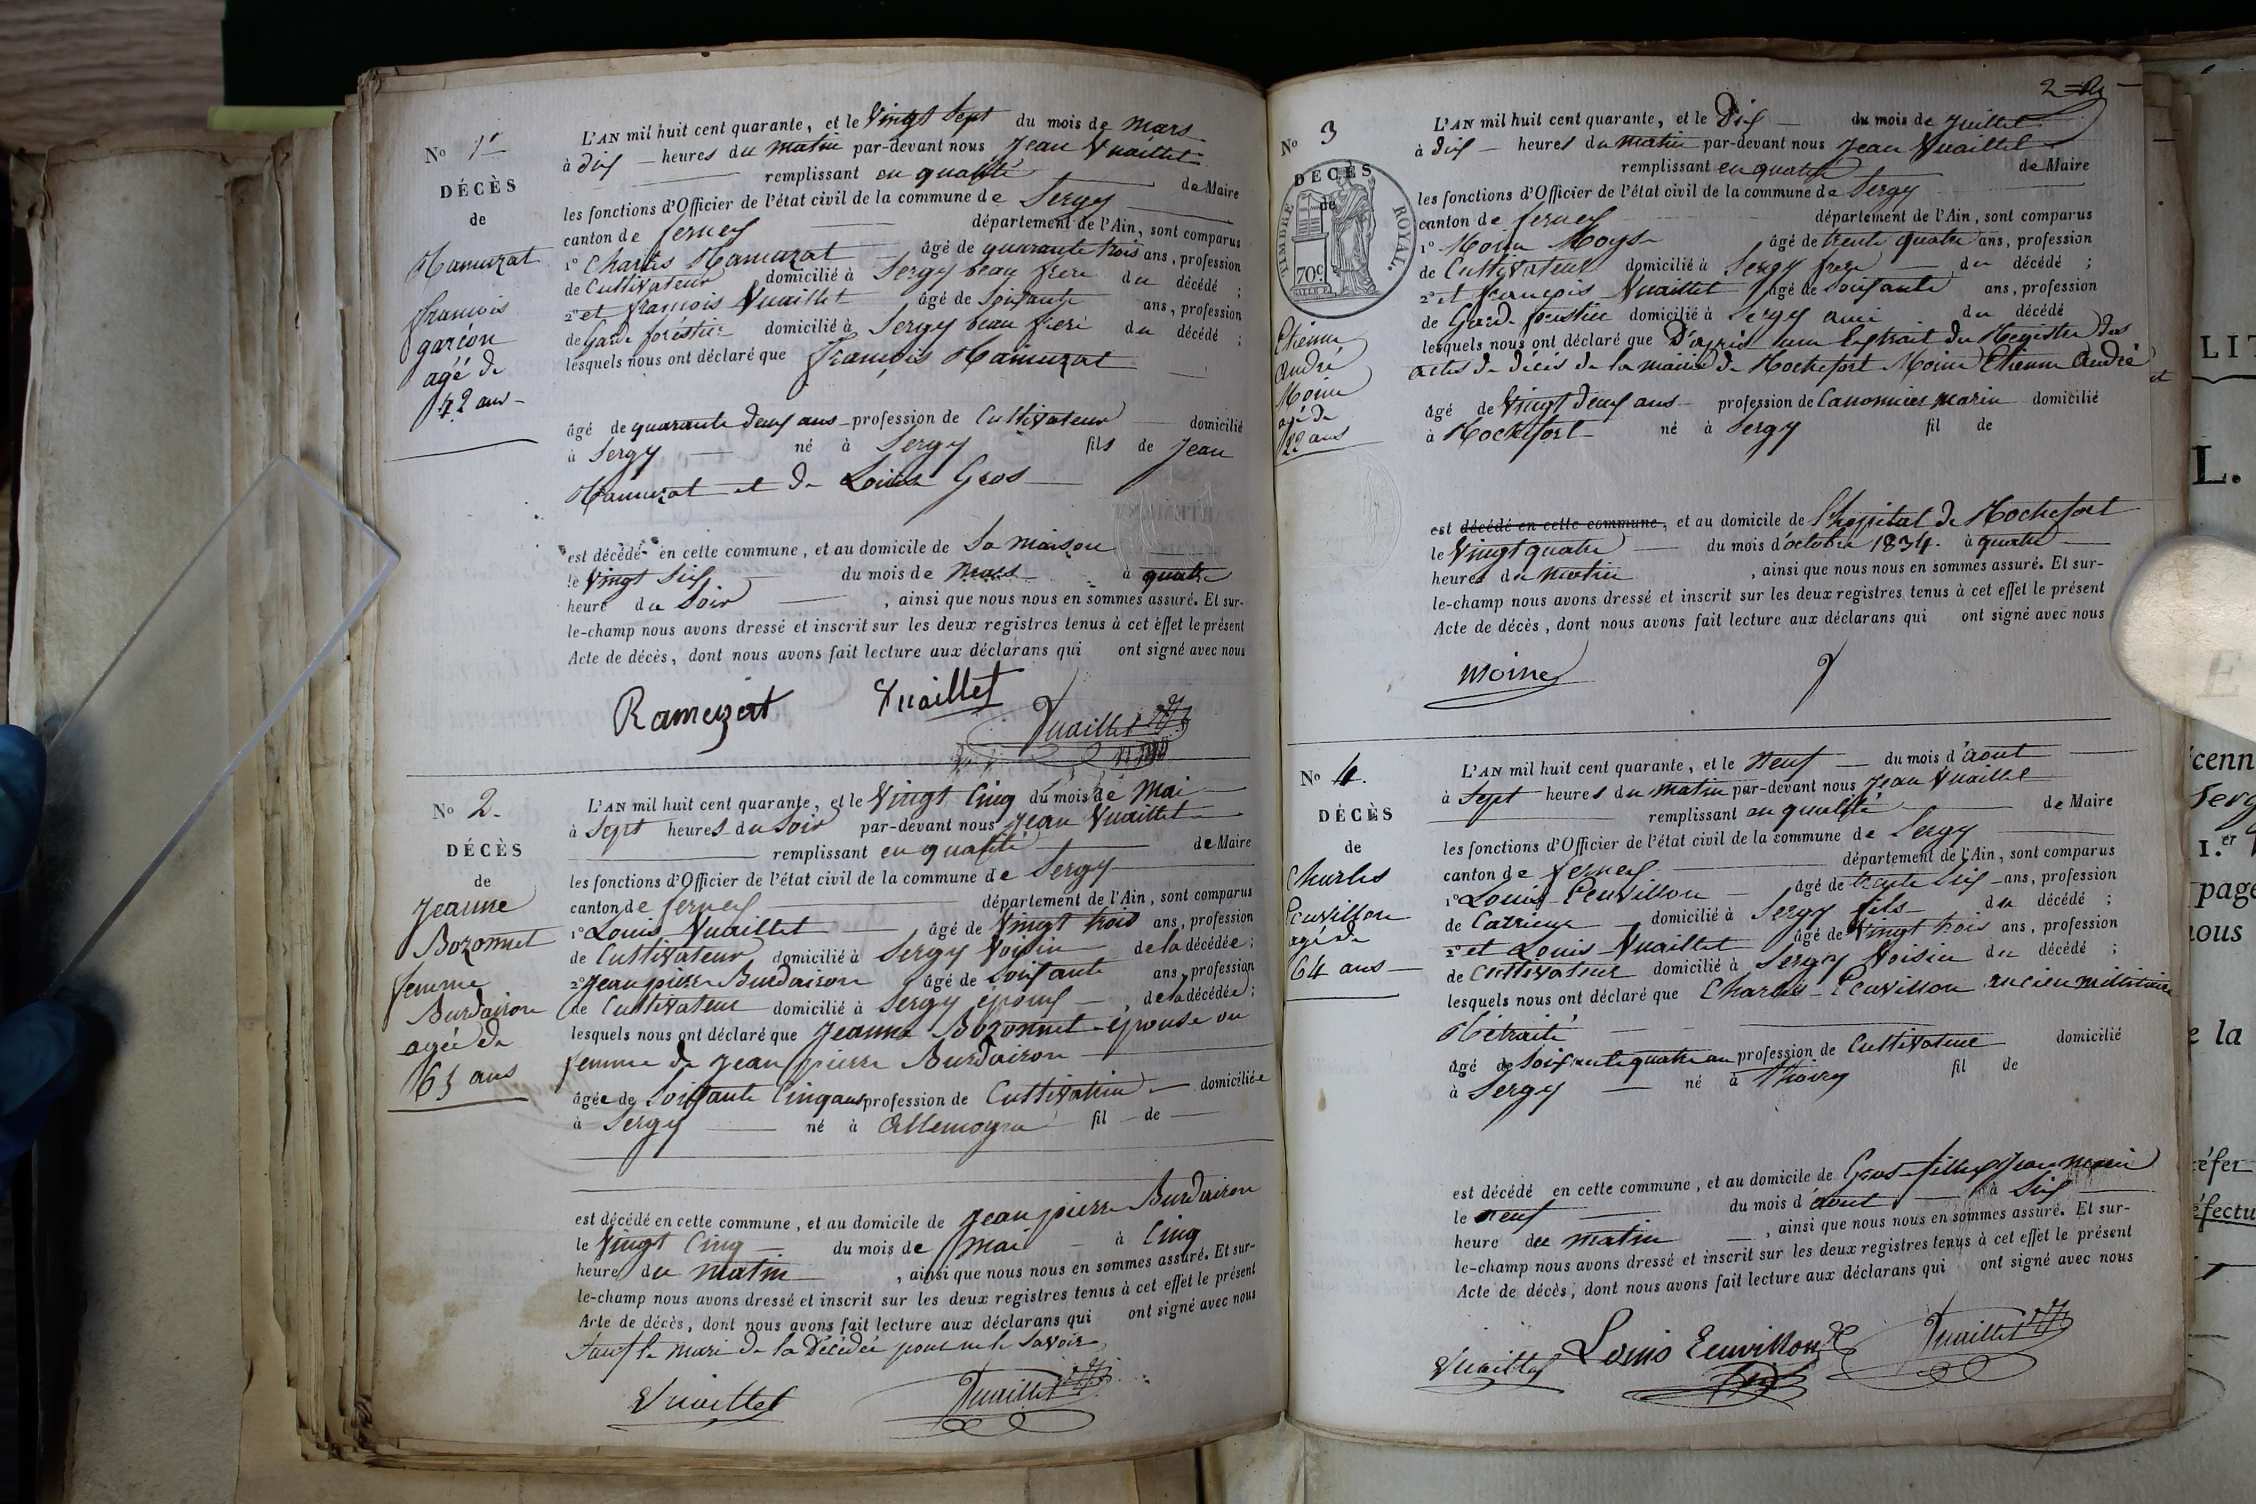 No 1er
DÉCÈS
de
Ramuzat
françois
garçon
agé de
42 ans
L'AN mil huit cent quarante, et le Vingt Sept du mois de Mars
à dix heures du matin par-devant nous Jean Vuaillet
remplissant en qualité de Maire
les fonctions d'Officier de l'état civil de la commune de Sergy
canton de ferney département de l'Ain, sont comparus
1º Charles Ramuzat âgé de quarante trois ans, profession
de Cultivateur domicilié à Sergy beau frere du décédé ;
2º et françois Vuaillet âgé de Soixante ans, profession
de Garde forestier domicilié à Sergy beau frere du décédé ;
lesquels nous ont déclaré que François Ramuzat
âgé de quarante deux ans profession de Cultivateur domicilié
à Sergy né à Sergy fils de Jean
Ramuzat et de Louise Gros
est décédé en cette commune, et au domicile de Sa Maison
le Vingt Six du mois de Mars à quatre
heure du Soir , ainsi que nous nous en sommes assuré. Et sur-
le-champ nous avons dressé et inscrit sur les deux registres tenus à cet effet le présent
Acte de décès, dont nous avons fait lecture aux déclarans qui ont signé avec nous
Ramuzat Vuaillet
Vuaillet
No 2.
DÉCÈS
de
Jeanne
Bozonnet
femme
Burdairon
agée de
65 ans
L'AN mil huit cent quarante, et le Vingt Cinq du mois de Mai
à Sept heures du Soir par-devant nous Jean Vuaillet
remplissant en qualité de Maire
les fonctions d'Officier de l'état civil de la commune de Sergy
canton de ferney département de l'Ain, sont comparus
1º Louis Vuaillet âgé de Vingt trois ans, profession
de Cultivateur domicilié à Sergy Voisin de la décédée ;
2º Jean pierre Burdairon âgé de Soixante ans, profession
de Cultivateur domicilié à Sergy époux de la décédée ;
lesquels nous ont déclaré que Jeanne Bozonnet épouse ou
femme de Jean pierre Burdairon
âgée de Soixante Cinq ans profession de Cultivatrice domiciliée
à Sergy né à Allemogne fil de
est décédé en cette commune, et au domicile de Jean pierre Burdairon
le Vingt Cinq du mois de Mai à Cinq
heure du matin , ainsi que nous nous en sommes assuré. Et sur-
le-champ nous avons dressé et inscrit sur les deux registres tenus à cet effet le présent
Acte de décès, dont nous avons fait lecture aux déclarans qui ont signé avec nous
Sauf le Mari de la Décédée pour ne le Savoir
Vuaillet Vuaillet
No 3
DÉCÈS
de
TIMBRE ROYAL.
70 c.
Etienne
André
Moine
agé de
22 ans
L'AN mil huit cent quarante, et le Dix du mois de Juillet
à dix heures du matin par-devant nous Jean Vuaillet
remplissant en qualité de Maire
les fonctions d'Officier de l'état civil de la commune de Sergy
canton de ferney département de l'Ain, sont comparus
1º Moine Moyse âgé de trente quatre ans, profession
de Cultivateur domicilié à Sergy frere du décédé ;
2º et françois Vuaillet âgé de Soixante ans, profession
de Garde forestier domicilié à Sergy ami du décédé
lesquels nous ont déclaré que D'après un Extrait du Registre des
actes de décès de la mairie de Rochefort Moine Etienne André
âgé de Vingt deux ans profession de Canonnier marin domicilié
à Rochefort né à Sergy fil de
est décédé en cette commune, et au domicile de L'hopital de Rochefort
le Vingt quatre du mois d'octobre 1834. à quatre
heures du matin , ainsi que nous nous en sommes assuré. Et sur-
le-champ nous avons dressé et inscrit sur les deux registres tenus à cet effet le présent
Acte de décès, dont nous avons fait lecture aux déclarans qui ont signé avec nous
moine
No 4.
DÉCÈS
de
Charles
Ecuvillon
agé de
64 ans
L'AN mil huit cent quarante, et le Neuf du mois d'aout
à Sept heures du matin par-devant nous Jean Vuaillet
remplissant en qualité de Maire
les fonctions d'Officier de l'état civil de la commune de Sergy
canton de ferney département de l'Ain, sont comparus
1º Louis Ecuvillon âgé de trente Six ans, profession
de domicilié à Sergy fils du décédé ;
2º et Louis Vuaillet âgé de Vingt trois ans, profession
de Cultivateur domicilié à Sergy Voisin du décédé ;
lesquels nous ont déclaré que Charles Ecuvillon ancien militaire
Rétraité
âgé de Soixante quatre an profession de Cultivateur domicilié
à Sergy né à Thoiry fil de
est décédé en cette commune, et au domicile de Gros
le neuf du mois d'aout à Six
heure du matin , ainsi que nous nous en sommes assuré. Et sur-
le-champ nous avons dressé et inscrit sur les deux registres tenus à cet effet le présent
Acte de décès, dont nous avons fait lecture aux déclarans qui ont signé avec nous
Vuaillet Louis Ecuvillon Vuaillet